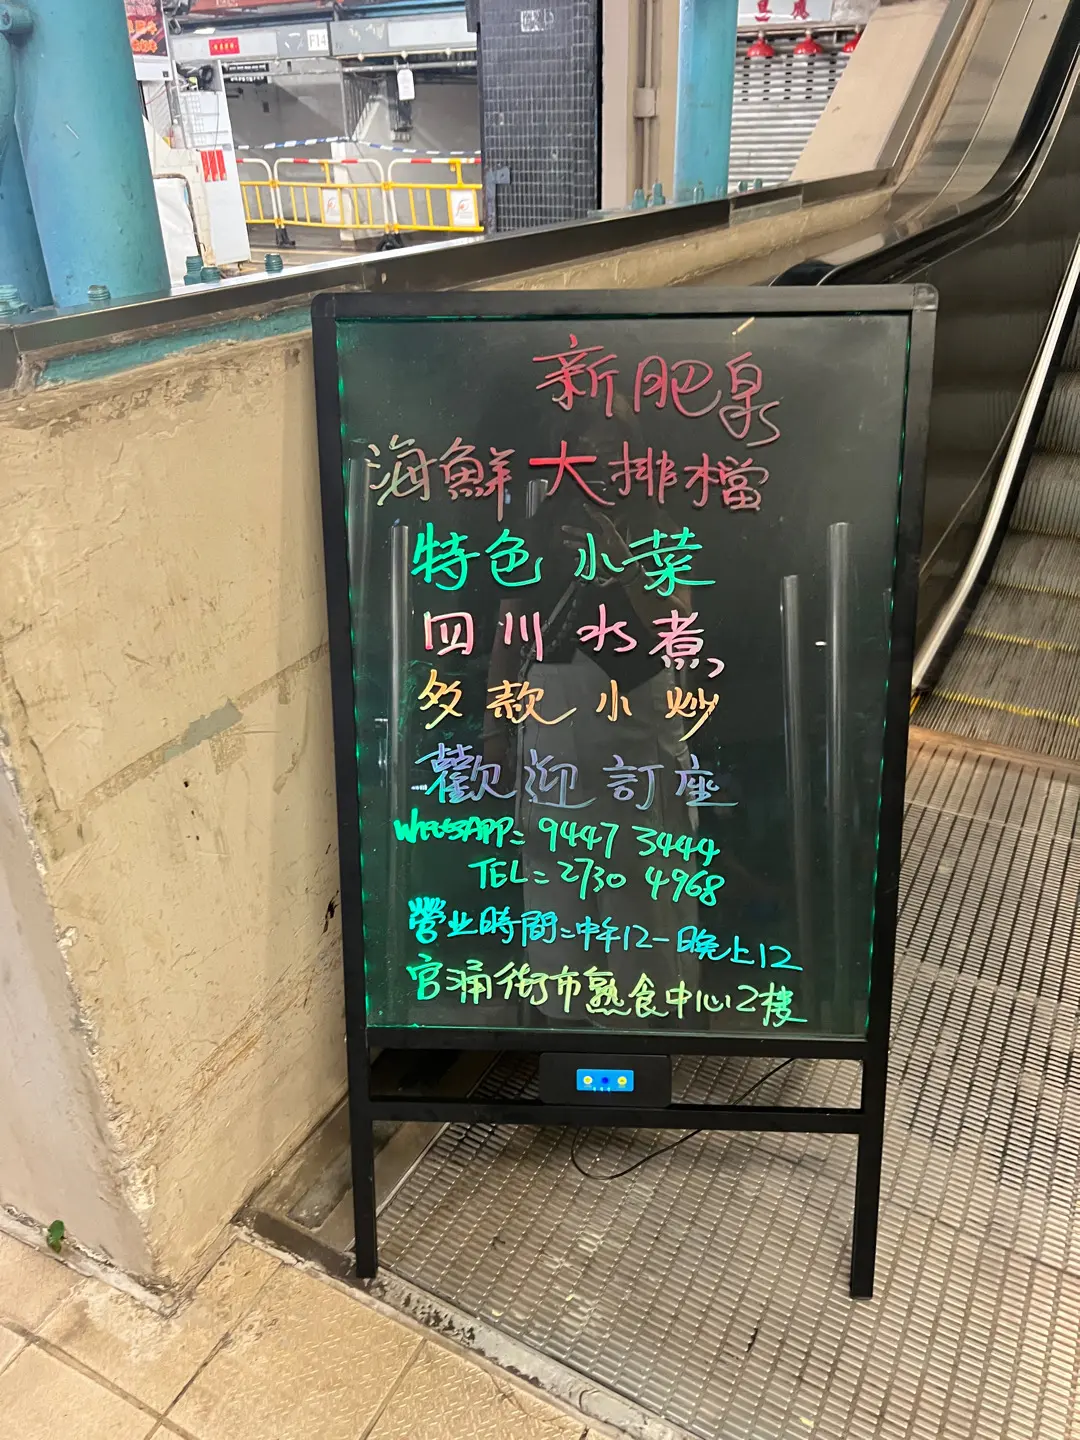 F14
新肥泉
海鮮大排檔
特色小菜
四川水煮
多款小炒
歡迎訂座
WHATSAPP= 9447 3444
TEL= 2730 4968
營业時間=中午12-晚上12
官涌街市熟食中心2樓